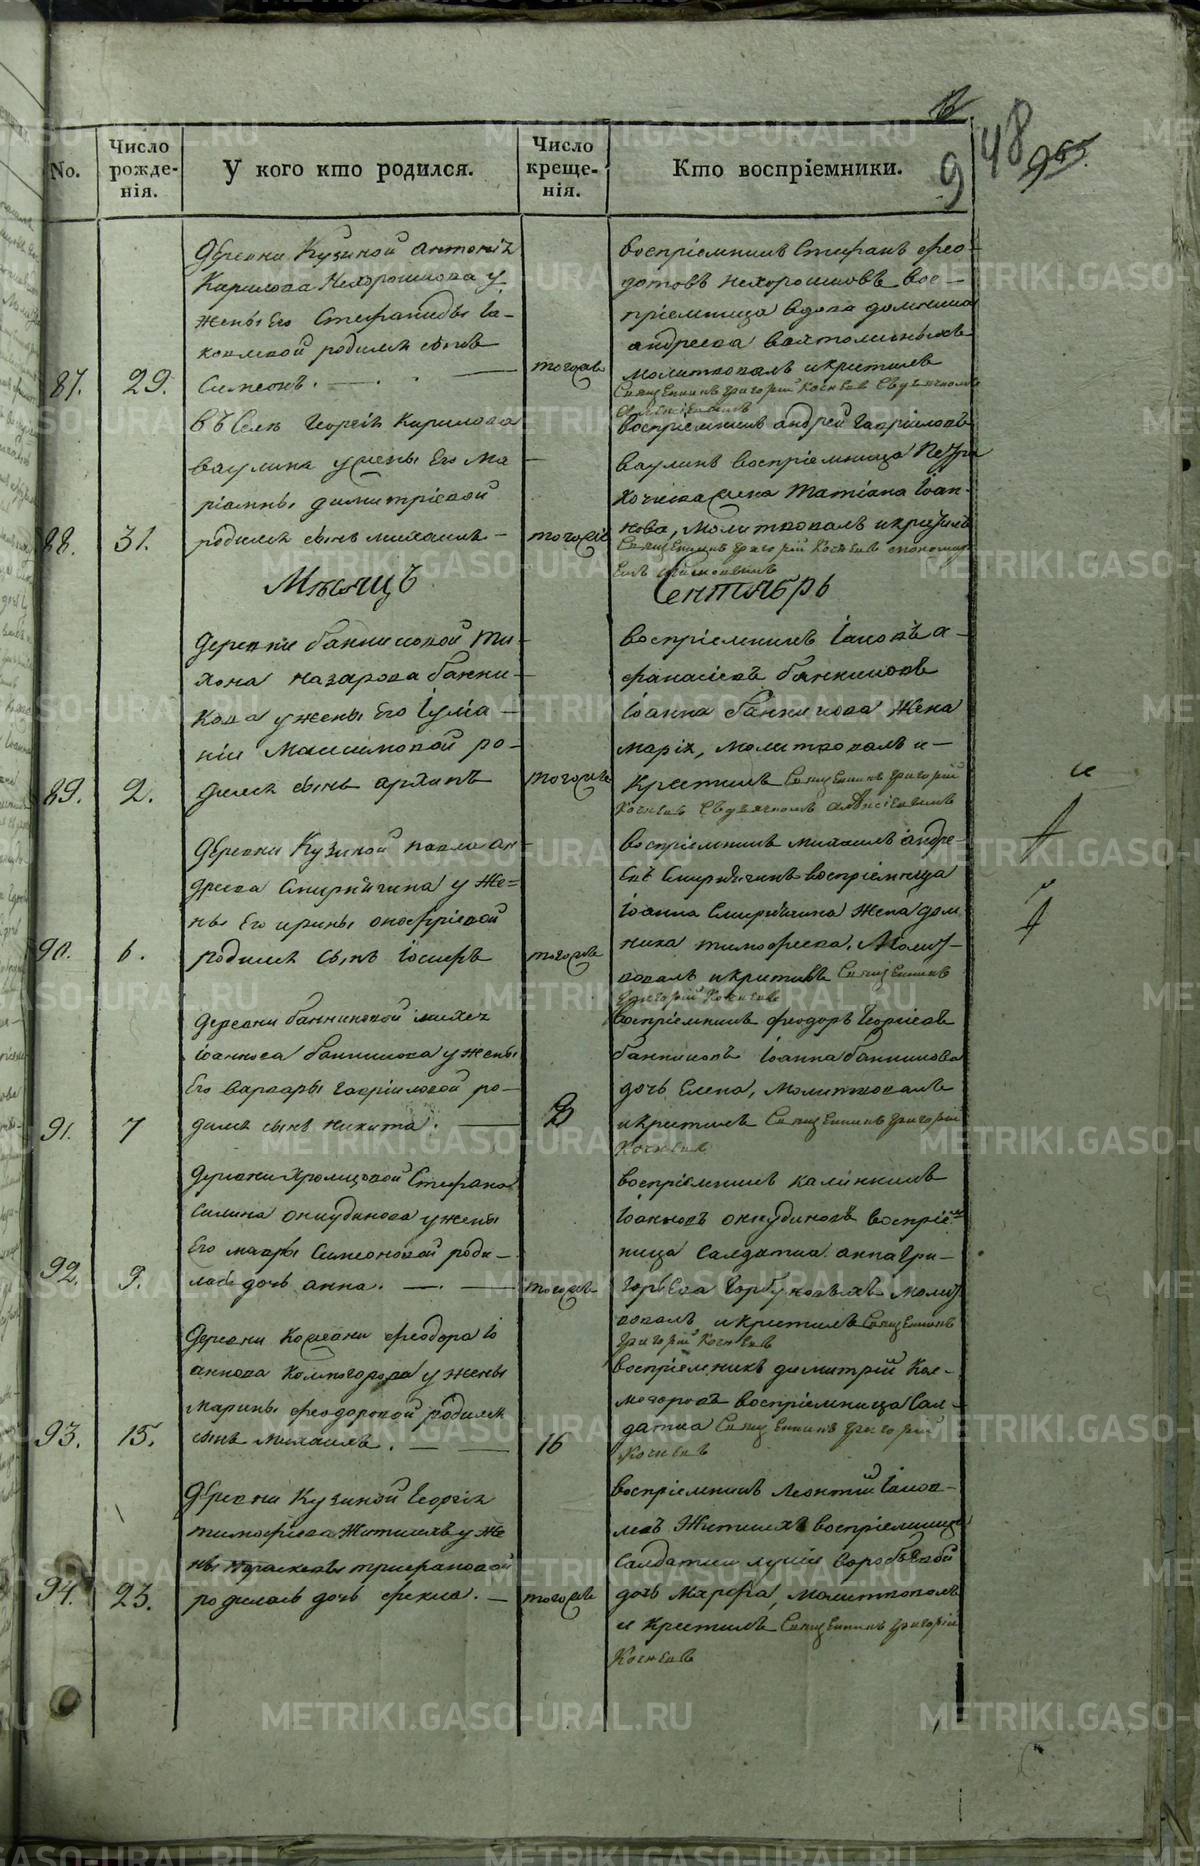 48
9
No.
Число рожде-нія.
У кого кто родился.
Число креще-нія.
Кто воспріемники.
87.
29.
Деревни Кузиной Антонія
Кирилова Нехорошкова у
жены Его Стефаниды Іа-
ковлевой родился сынъ
Симеонъ.
тогожъ
воспріемникъ Стефанъ фео-
дотовъ Нехорошковъ вос-
пріемница вдова домника
андреева
молитвовалъ и крестилъ
Священникъ Григорій Кочневъ Съ дьячкомъ
88.
31.
Въ Селѣ Георгія Кирилова
Ваулина у жены Его Ма
ріамны димитріевой
родился сынъ михаилъ
тогожъ
воспріемникъ андрей Гавріиловъ
Ваулинъ воспріемница Петра
Кочнева жена Татіана Іоан-
нова, молитвовалъ и крестилъ
Священникъ Григорій Кочневъ
Мѣсяцъ
Сентябрь
89.
2.
Деревни банниковой Ти-
хона назарова банни-
кова у жены Его Іулiа-
ніи Максимовой ро-
дился сынъ архипъ
тогожъ
воспріемникъ Іаковъ а-
фанасіевъ банниковъ
Іоанна банникова жена
марія, молитвовалъ и
крестилъ Священникъ Григорій
Кочневъ Съ дьячкомъ
90.
6.
Деревни Кузиной павла ан
дреева у же=
ны Его ирины онофріевой
родился сынъ Іосифъ
тогожъ
воспріемникъ михаилъ андре-
евъ воспріемница
Іоанна жена дом
ника тимофеева, Молит-
вовалъ и крестилъ Священникъ
Григорій Кочневъ
91.
7
Деревни банниковой
Іоаннова банникова у жены
Его варвары гавріиловой ро-
дился сынъ никита.
8
воспріемникъ феодоръ Георгіевъ
банниковъ Іоанна банникова
дочь Елена, молитвовалъ
и крестилъ Священникъ Григорій
Кочневъ
92.
9.
Деревни Стефана
Силина онкудинова у жены
Его мавры Симеоновой роди-
лась дочь анна.
тогожъ
воспріемникъ калинникъ
Іаковъ онкудиновъ воспріем
ница Салдатка анна Гри-
горьева Молит
вовалъ и крестилъ Священникъ
Григорій Кочневъ
93.
15.
Деревни феодора Іо
аннова Колмогорова у жены
марины феодоровой родился
сынъ михаилъ.
16
воспріемникъ димитрій Кол-
могоровъ воспріемница Сал-
датка Священникъ Григорій
Кочневъ
94.
23.
Деревни Кузиной Георгія
тимофеева Житкихъ у же
ны Параскевы трифановой
родилась дочь фекла.
тогожъ
воспріемникъ Леонтій Іаков-
левъ Житкихъ воспріемница
Салдатки лукіи воробьевой
дочь Марфа, молитвовалъ
и крестилъ Священникъ Григорій
Кочневъ
METRIKI.GASO-URAL.RU